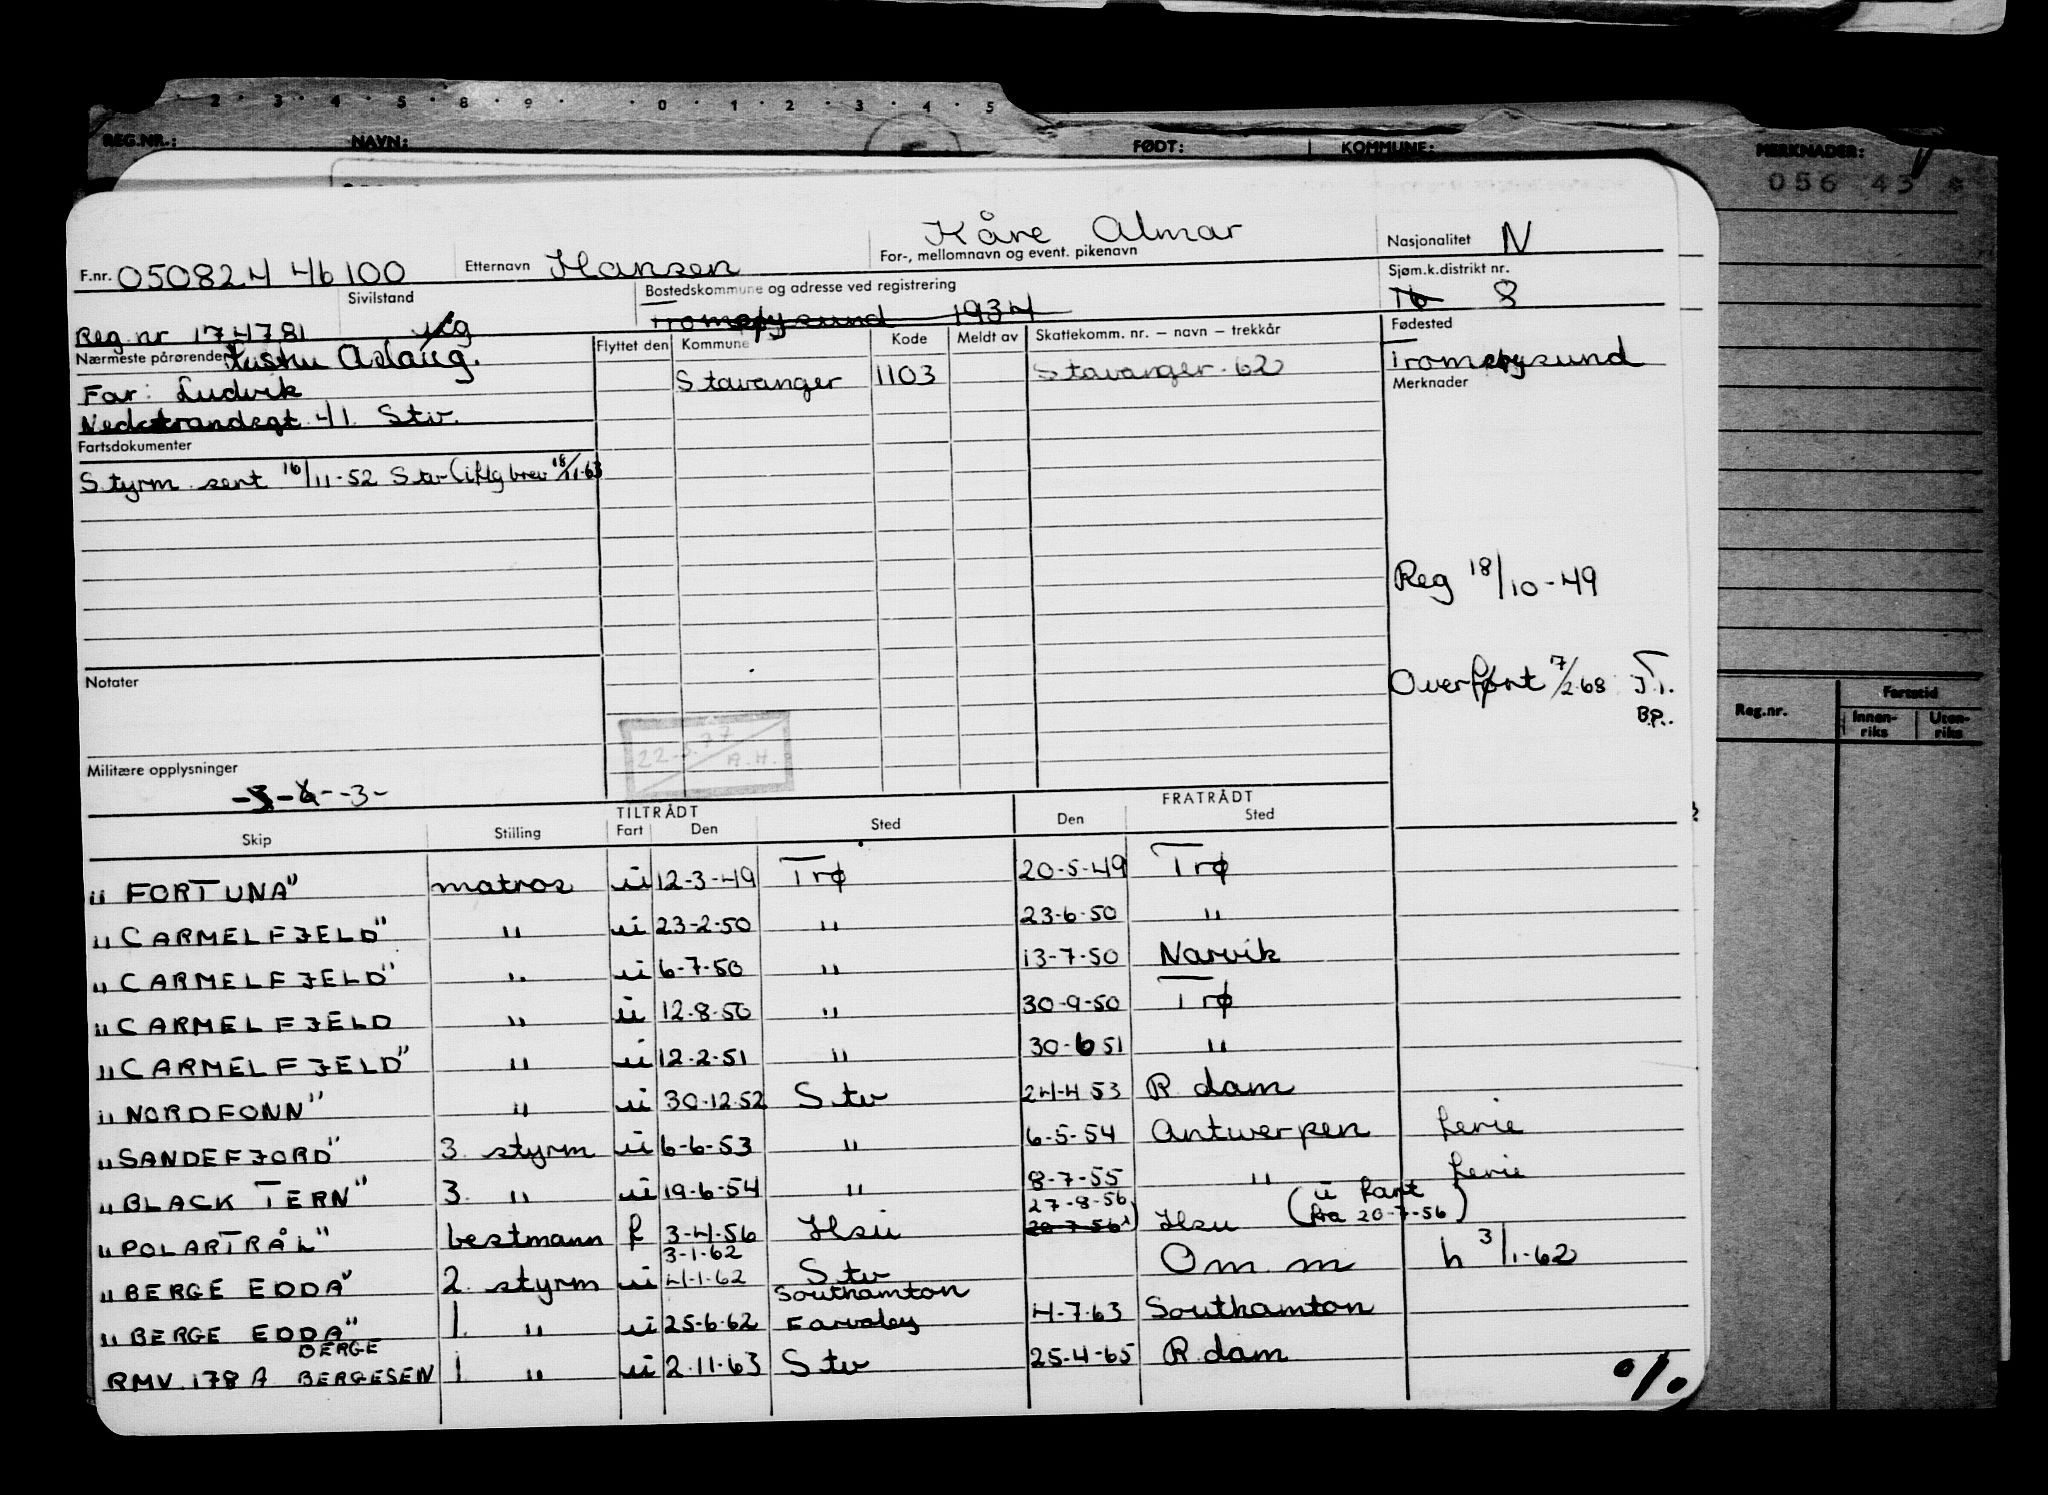 2 · 3 · 4 · 5 · 8 · 9 · · 0 · 1 · 2 · 3 · 4 · 5
REG.NR.: NAVN: FØDT: KOMMUNE: MERKNADER:
056 43 *
F.nr. 050824 46100 Etternavn Hansen Kåre Almar
For-, mellomnavn og event. pikenavn
Nasjonalitet N
Reg.nr 174781 Sivilstand
Bostedskommune og adresse ved registrering
Tromøysund 1934
Sjøm.k.distrikt nr. 16 8
Nærmeste pårørende Aslaug.
Far: Ludvik
Nedstrandsgt. 41. Stv.
Flyttet den Kommune Kode Meldt av Skattekomm. nr. — navn — trekkår
Stavanger 1103 Stavanger-62
Fødested
Tromøysund
Merknader
Fartsdokumenter
Styrm sert 16/11-52 Stv brev 18/11-63
Reg 18/10-49
Overført 7/2-68 T.i.
B.P.
Notater
22-3.77
A.H.
Militære opplysninger
-3-
Reg.nr. Fartstid
Innen-riks Uten-riks
TILTRÅDT FRATRÅDT
Skip Stilling Fart Den Sted Den Sted
"FORTUNA" matros ui 12-3-49 Trø 20-5-49 Trø
"CARMELFJELD" " ui 23-2-50 " 23-6-50 "
"CARMELFJELD" " ui 6-7-50 " 13-7-50 Narvik
"CARMELFJELD " ui 12-8-50 " 30-9-50 Trø
"CARMELFJELD" " ui 12-2-51 " 30-6 51 "
"NORDFONN" " ui 30-12-52 Stv 24-4 53 R.dam
"SANDEFJORD" 3. styrm ui 6-6-53 " 6-5-54 Antwerpen ferie
"BLACK TERN" 3. " ui 19-6-54 " 8-7-55 " ferie
"POLARTRÅL" bestmann f 3-4-56 Hsu 27-8-56 20-7-56 Hsu (ü fart fra 20-7-56)
"BERGE EDDA" 2. styrm ui 3-1-62 4-1-62 Stv Om. m h 3/1-62
"BERGE EDDA" 1. " ui 25-6-62 Southamton Farvaley 4-7-63 Southamton
RMV. 178 A BERGE BERGESEN 1 " ui 2.11-63 Stv 25-4-65 R.dam
o/o